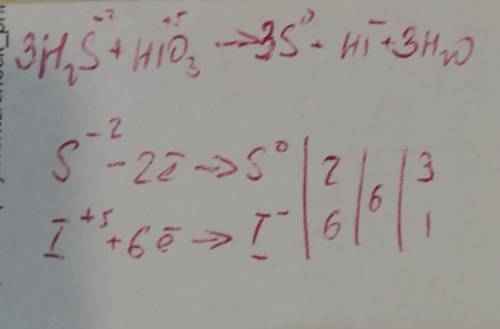 3H₂S⁻² + HI⁺⁵O₃ → 3S⁰ + HI⁻ + 3H₂O
S⁻² - 2ē → S⁰ | 2 | 6 | 3
I⁺⁵ + 6ē → I⁻ | 6 | | 1